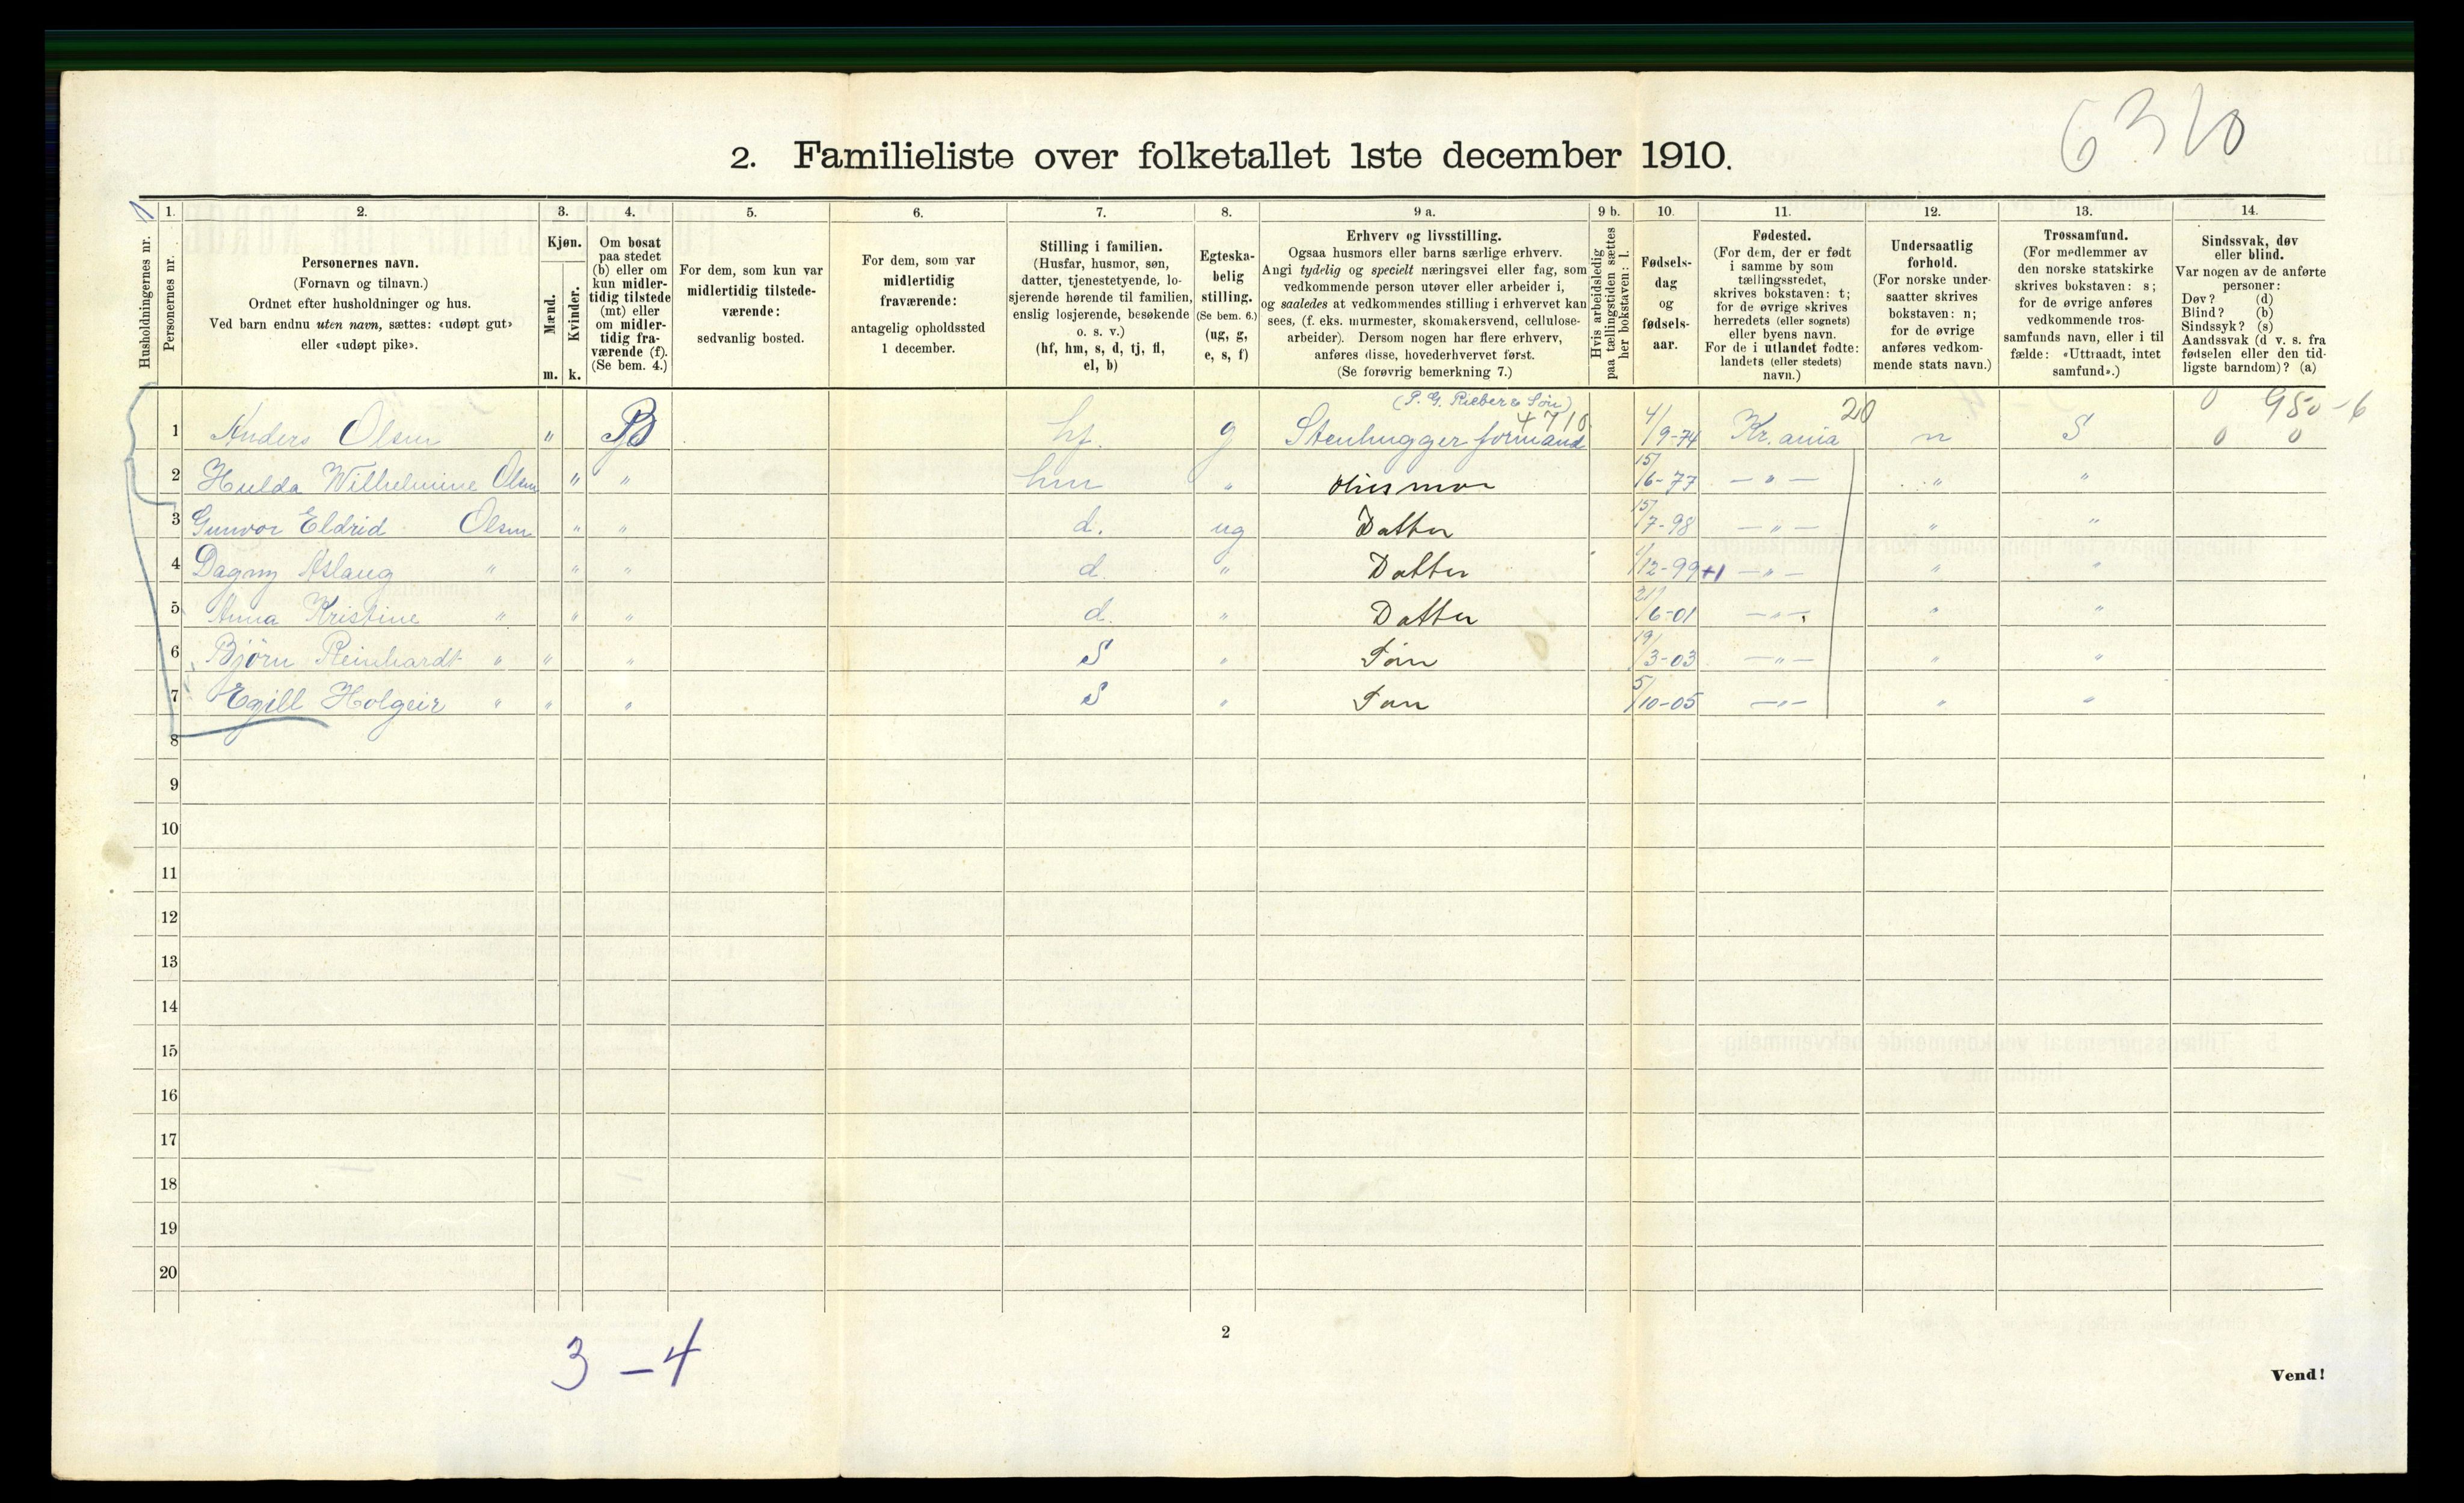 6310
2. Familieliste over folketallet 1ste december 1910.
1. 2. 3. 4. 5. 6. 7. 8. 9 a. 9 b. 10. 11. 12. 13. 14.
Husholdningernes nr.
Personernes nr.
Personernes navn.
(Fornavn og tilnavn.)
Ordnet efter husholdninger og hus.
Ved barn endnu uten navn, sættes: «udøpt gut»
eller «udøpt pike».
Kjøn.
Mænd.
Kvinder.
m. k.
Om bosat
paa stedet
(b) eller om
kun midler-
tidig tilstede
(mt) eller
om midler-
tidig fra-
værende (f).
(Se bem. 4.)
For dem, som kun var
midlertidig tilstede-
værende:
sedvanlig bosted.
For dem, som var
midlertidig
fraværende:
antagelig opholdssted
1 december.
Stilling i familien.
(Husfar, husmor, søn,
datter, tjenestetyende, lo-
sjerende hørende til familien,
enslig losjerende, besøkende
o. s. v.)
(hf, hm, s, d, tj, fl,
el, b)
Egteska-
belig
stilling.
(Se bem. 6.)
(ug, g,
e, s, f)
Erhverv og livsstilling.
Ogsaa husmors eller barns særlige erhverv.
Angi tydelig og specielt næringsvei eller fag, som
vedkommende person utøver eller arbeider i,
og saaledes at vedkommendes stilling i erhvervet kan
sees, (f. eks. murmester, skomakersvend, cellulose-
arbeider). Dersom nogen har flere erhverv,
anføres disse, hovederhvervet først.
(Se forøvrig bemerkning 7.)
Hvis arbeidsledig
paa tællingstiden sættes
her bokstaven: l.
Fødsels-
dag
og
fødsels-
aar.
Fødested.
(For dem, der er født
i samme by som
tællingsstedet,
skrives bokstaven: t;
for de øvrige skrives
herredets (eller sognets)
eller byens navn.
For de i utlandet fødte:
landets (eller stedets)
navn.)
Undersaatlig
forhold.
(For norske under-
saatter skrives
bokstaven: n;
for de øvrige
anføres vedkom-
mende stats navn.)
Trossamfund.
(For medlemmer av
den norske statskirke
skrives bokstaven: s;
for de øvrige anføres
vedkommende tros-
samfunds navn, eller i til
fælde: «Uttraadt, intet
samfund».)
Sindssvak, døv
eller blind.
Var nogen av de anførte
personer:
Døv? (d)
Blind? (b)
Sindssyk? (s)
Aandssvak (d v. s. fra
fødselen eller den tid-
ligste barndom)? (a)
(P. G. Rieber & Søn) 4710 20 0 950-6
1 Anders Olsen " B hf. g Stenhugger formand 4/9-74 Kr.ania n S 0 0
2 Hulda Wilhelmine Olsen " " hm " Husmor 15/6-77 — " — " "
3 Gunvor Eldrid Olsen " " d. ug Datter 15/7-98 — " — " "
4 Dagny Aslaug " " " d. " Datter 1/12-99 +1 — " — " "
5 Anna Kristine " " " d. " Datter 21/6-01 — " — " "
6 Bjørn Reinhardt " " " S " Søn 19/3-03 — " — " "
7 Egill Holgeir " " " S " Søn 5/10-05 — " — " "
8
9
10
11
12
13
14
15
16
17
18
19
20
3 - 4
2
Vend!